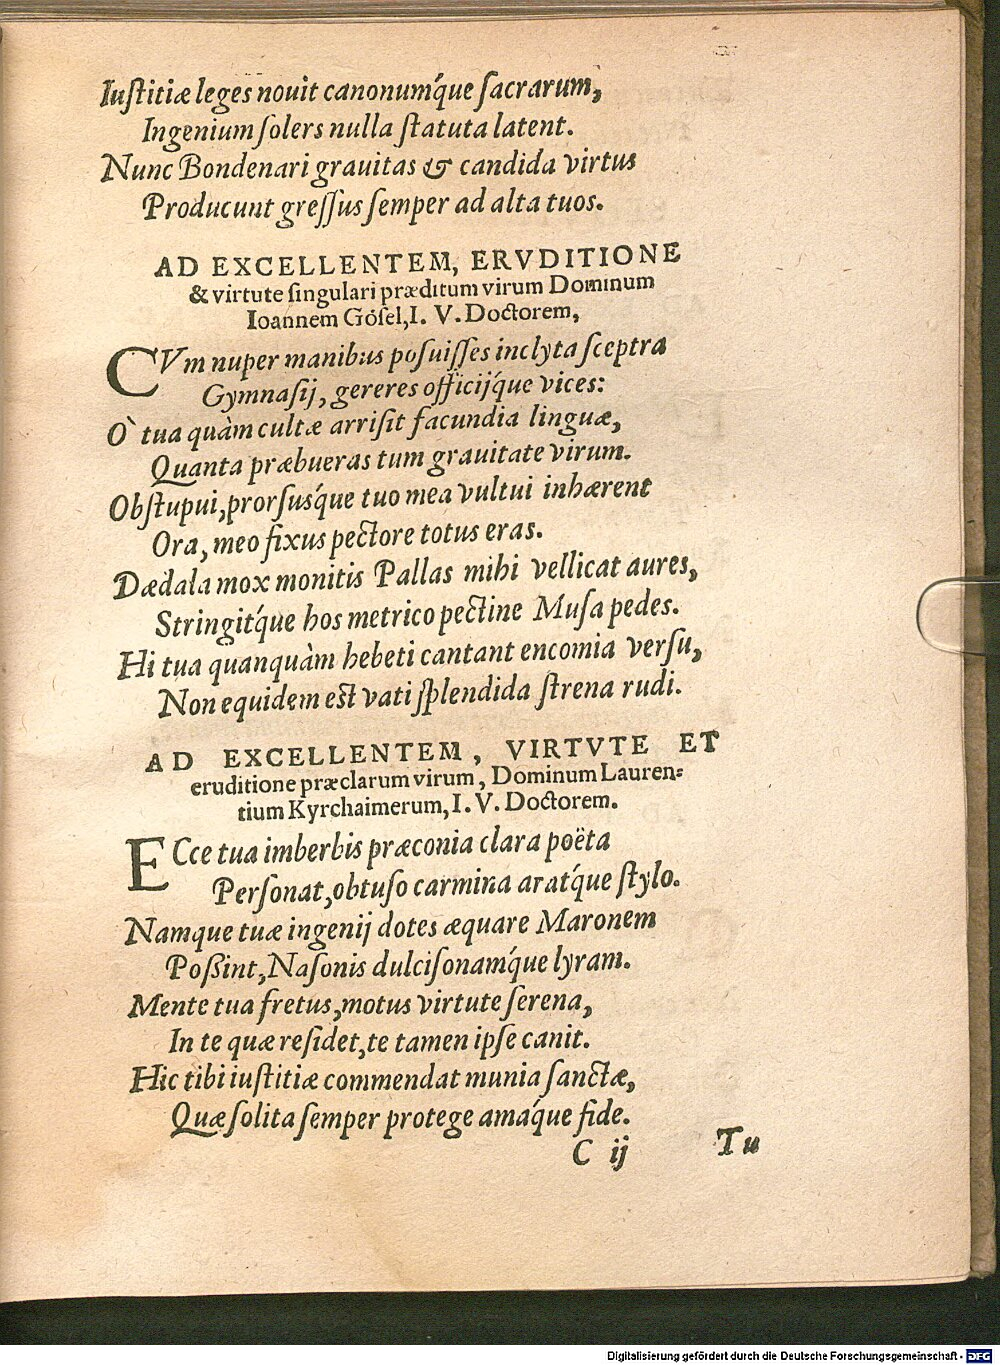 Iuſtitiæ leges nouit canonumq́ue ſacrarum,
Ingenium ſolers nulla ſtatuta latent.
Nunc Bondenari grauitas & candida virtus
Producunt greſſus ſemper ad alta tuos.
AD EXCELLENTEM, ERVDITIONE
& virtute ſingulari præditum virum Dominum
Ioannem Göſel, I. V. Doctorem,
CVm nuper manibus poſuiſſes inclyta ſceptra
Gymnaſij, gereres officijq́ue vices:
Ò tua quàm cultæ arriſit facundia linguæ,
Quanta præbueras tum grauitate virum.
Obſtupui, prorſusq́ue tuo mea vultui inhærent
Ora, meo fixus pectore totus eras.
Dædala mox monitis Pallas mihi vellicat aures,
Stringitq́ue hos metrico pectine Muſa pedes.
Hi tua quanquàm hebeti cantant encomia verſu,
Non equidem eſt vati ſplendida ſtrena rudi.
AD EXCELLENTEM, VIRTVTE ET
eruditione præclarum virum, Dominum Lauren⸗
tium Kyrchaimerum, I. V. Doctorem.
ECce tua imberbis præconia clara poëta
Perſonat, obtuſo carmina aratq́ue ſtylo.
Namque tuæ ingenij dotes æquare Maronem
Poßint, Naſonis dulciſonamq́ue lyram.
Mente tua fretus, motus virtute ſerena,
In te quæ reſidet, te tamen ipſe canit.
Hic tibi iuſtitiæ commendat munia ſanctæ,
Quæ ſolita ſemper protege amaq́ue fide.
C ij Tu
Digitalisierung gefördert durch die Deutsche Forschungsgemeinschaft - DFG